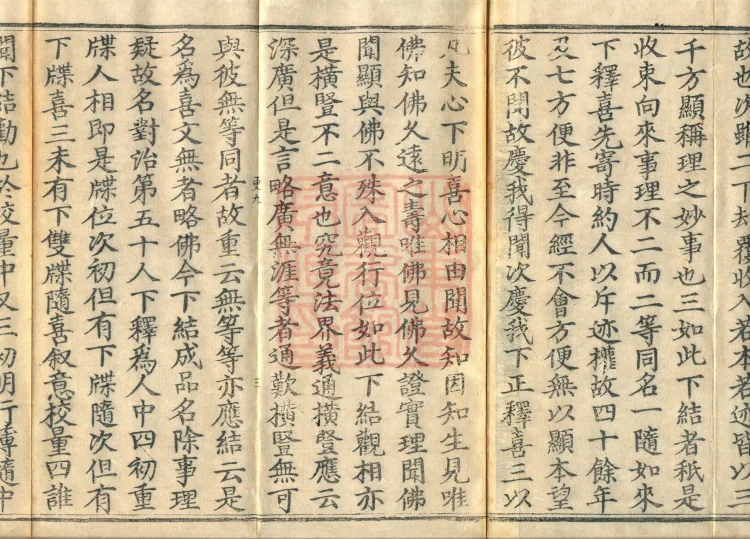 故也次雖二下却覆收入若本若迹皆以三
千方顯稱理之妙事也三如此下結者秖是
收束向來事理不二而二等同名一隨如來
下釋喜先寄時約人以斥迹權故四十餘年
及七方便非至今經不會方便無以顯本望
彼不聞故慶我得聞次慶我下正釋喜三以
凡夫心下明喜心相由聞故知因知生見唯
佛知佛久遠之壽唯佛見佛久證實理聞佛
聞顯與佛不殊入觀行位如此下結觀相亦
是橫豎不二意也究竟法界義通橫豎應云
深廣但是言略廣無涯等者通歎橫豎無可
與彼無等同者故重云無等等亦應結云是
名爲喜文無者略佛今下結成品名除事理
疑故名對治第五十人下釋爲人中四初重
牒人相即是牒位次初但有下牒隨次但有
下牒喜三未有下雙牒隨喜叙意校量四誰
聞下結勸也於校量中又三初明